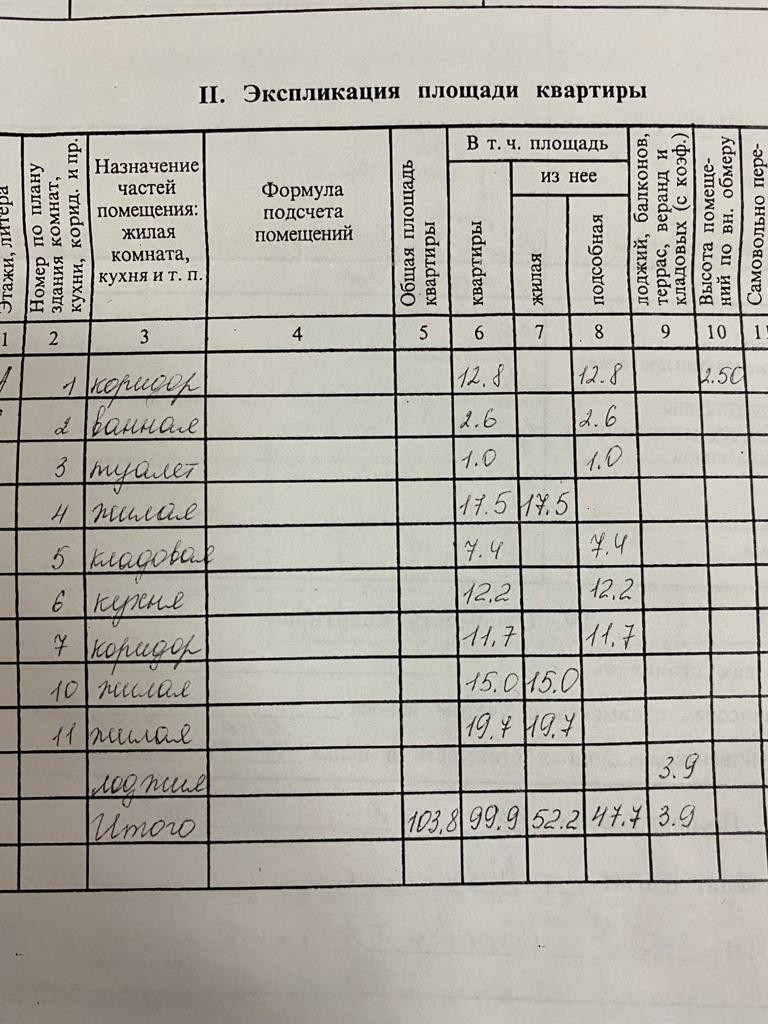 II. Экспликация площади квартиры
Этажи, литера
Номер по плану здания комнат, кухни, корид. и пр.
Назначение частей помещения: жилая комната, кухня и т. п.
Формула подсчета помещений
Общая площадь квартиры
В т. ч. площадь
квартиры
из нее
жилая
подсобная
лоджий, балконов, террас, веранд и кладовых (с коэф.)
Высота помещений по вн. обмеру
Самовольно пере-
1 2 3 4 5 6 7 8 9 10 11
1 коридор 12.8 12.8 2.50
2 ванная 2.6 2.6
3 туалет 1.0 1.0
4 жилая 17.5 17.5
5 кладовая 7.4 7.4
6 кухня 12.2 12.2
7 коридор 11.7 11.7
10 жилая 15.0 15.0
11 жилая 19.7 19.7
лоджия 3.9
Итого 103,8 99.9 52.2 47.7 3.9